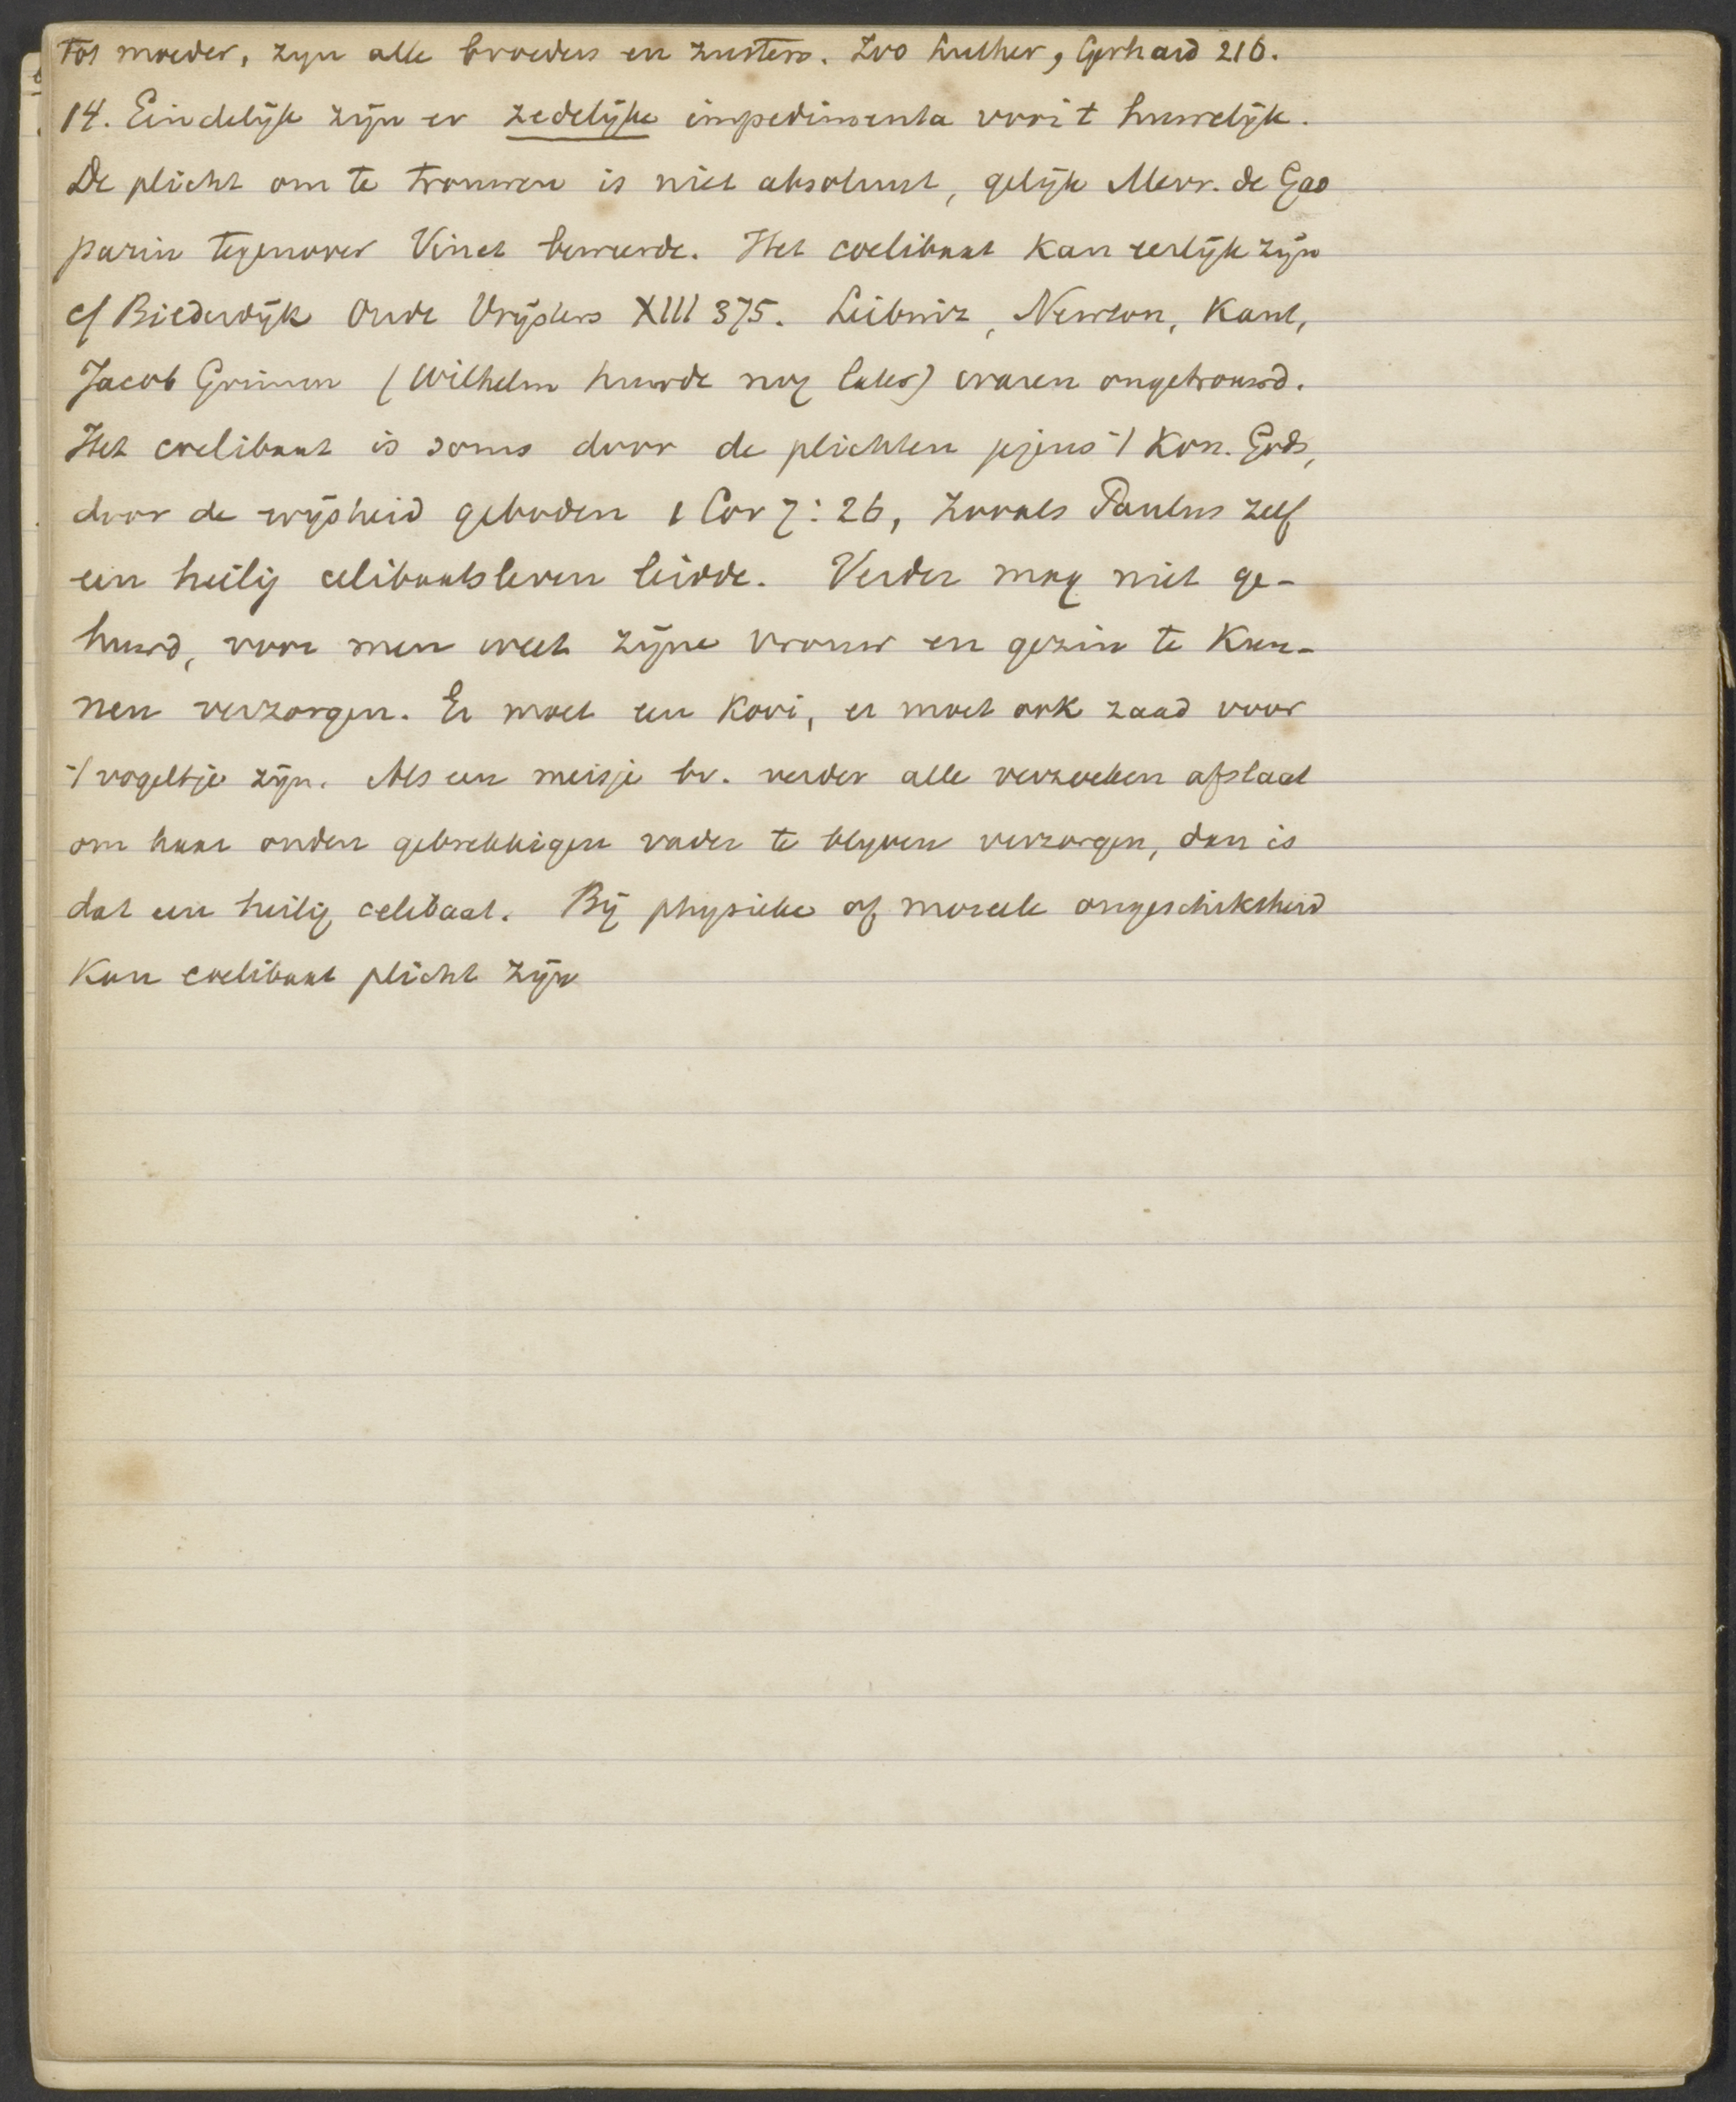 tot moeder, zyn alle broeders en zusters. Zoo Luther, Gerhard 216.
14. Eindelijk zijn er zedelijke impedimenta voor 't huwelijk.
De plicht om te trouwen is niet absoluut, gelijk Mevr. de Gas
parin tegenover Vinet beweerde. Het coelibaat kan eerlijk zijn
cf Bilderdijk Oude Vrijsters XIII 375. Leibniz, Newton, Kant,
Jacob Grimm (Wilhelm huwde nog later) waren ongetrouwd.
Het coelibaat is soms door de plichten jegens 't Kon. Gods,
door de wijsheid geboden 1 Cor 7:26, zooals Paulus zelf
een heilig celibaatsleven leidde. Verder mag niet ge-
huwd, voor men weet zijne vrouw en gezin te kun-
nen verzorgen. Er moet een kooi, er moet ook zaad voor
't vogeltje zijn. Als een meisje bv. verder alle verzoeken afslaat
om haar ouden gebrekkigen vader te blyven verzorgen, dan is
dat een heilig celibaat. Bij physieke of moreele ongeschiktheid
kan coelibaat plicht zijn